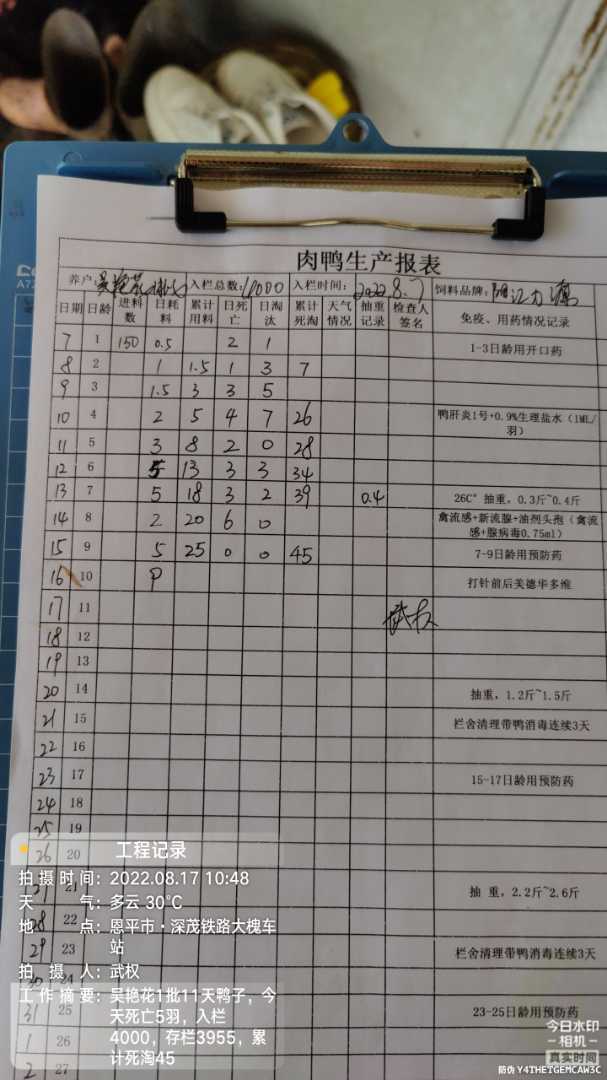 肉鸭生产报表
养户: 吴艳花 入栏总数: 4000 入栏时间: 2022.8.7 饲料品牌: 阳江力
日期 日龄 进料数 日耗料 累计用料 日死亡 日淘汰 累计死淘 天气情况 抽重记录 检查人签名 免疫、用药情况记录
7 1 150 0.5 2 1 1-3日龄用开口药
8 2 1 1.5 1 3 7
9 3 1.5 3 3 5
10 4 2 5 4 7 26 鸭肝炎1号+0.9%生理盐水（1ML/羽）
11 5 3 8 2 0 28
12 6 5 13 3 3 34
13 7 5 18 3 2 39 0.4 26C° 抽重，0.3斤~0.4斤
14 8 2 20 6 0 禽流感+新流腺+油剂头孢（禽流感+腺病毒0.75ml）
15 9 5 25 0 0 45 7-9日龄用预防药
16 10 P 打针前后美德华多维
17 11 武权
18 12
19 13
20 14 抽重，1.2斤~1.5斤
21 15 栏舍清理带鸭消毒连续3天
22 16
23 17 15-17日龄用预防药
24 18
25 19
26 20
21 抽 重，2.2斤~2.6斤
28 22
29 23 栏舍清理带鸭消毒连续3天
30 24
31 25 23-25日龄用预防药
1 26
2 27
工程记录
拍摄时间: 2022.08.17 10:48
天气: 多云 30℃
地点: 恩平市·深茂铁路大槐车站
拍摄人: 武权
工作摘要: 吴艳花1批11天鸭子，今天死亡5羽，入栏4000，存栏3955，累计死淘45
今日水印
-相机-
真实时间
防伪 Y4THETGEMCAW3C